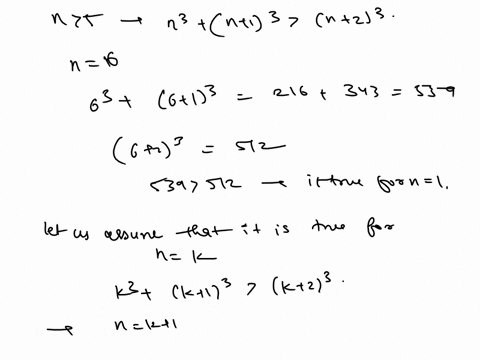 n > 5 → n³ + (n+1)³ > (n+2)³.
n = 6
6³ + (6+1)³ = 216 + 343 = 539
(6+2)³ = 512
539 > 512 → it true for n=1.
let us assume that it is true for
n = k
k³ + (k+1)³ > (k+2)³.
→ n = k+1